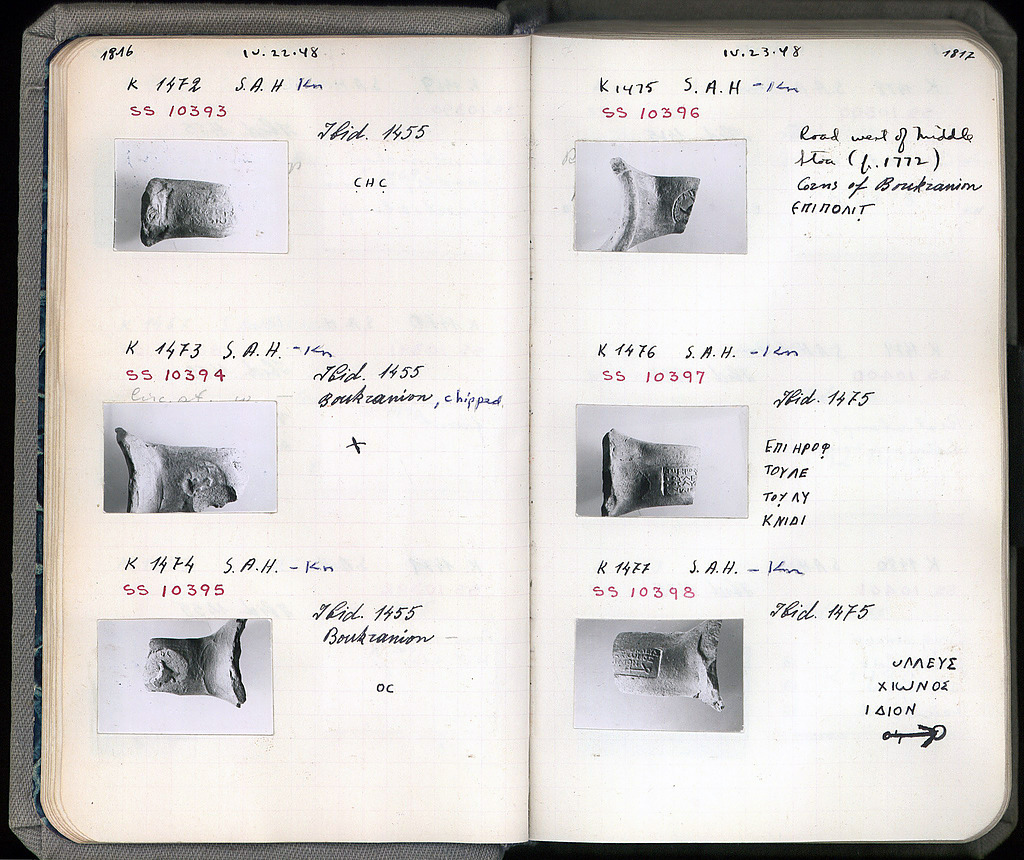 1816
IV.22.48
K 1472 S.A.H Kn
SS 10393
Ibid. 1455
CHC
K 1473 S.A.H. - Kn
SS 10394
Ibid. 1455
Boukranion, chipped.
K 1474 S.A.H. - Kn
SS 10395
Ibid. 1455
Boukranion —
OC
IV.23.48
1817
K 1475 S.A.H - Kn
SS 10396
Road west of Middle
Stoa (p. 1772)
Corns of Boukranion
ΕΠΙΠΟΛΙΤ
K 1476 S.A.H. - Kn
SS 10397
Ibid. 1475
ΕΠΙ ΗΡΟΦ
ΤΟΥΛΕ
ΤΟΥ ΛΥ
ΚΝΙΔΙ
K 1477 S.A.H. - Kn
SS 10398
Ibid. 1475
ΛΛΕΥΣ
ΧΙΩΝΟΣ
ΙΔΙΟΝ